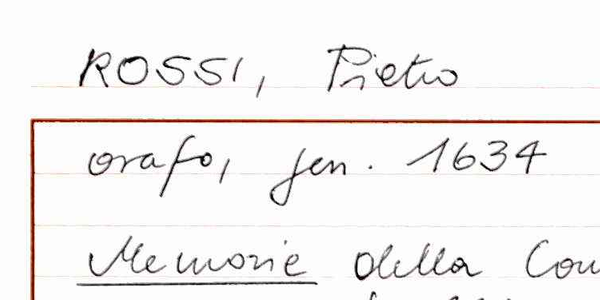 ROSSI, Pietro
orafo, gen. 1634
Memorie della